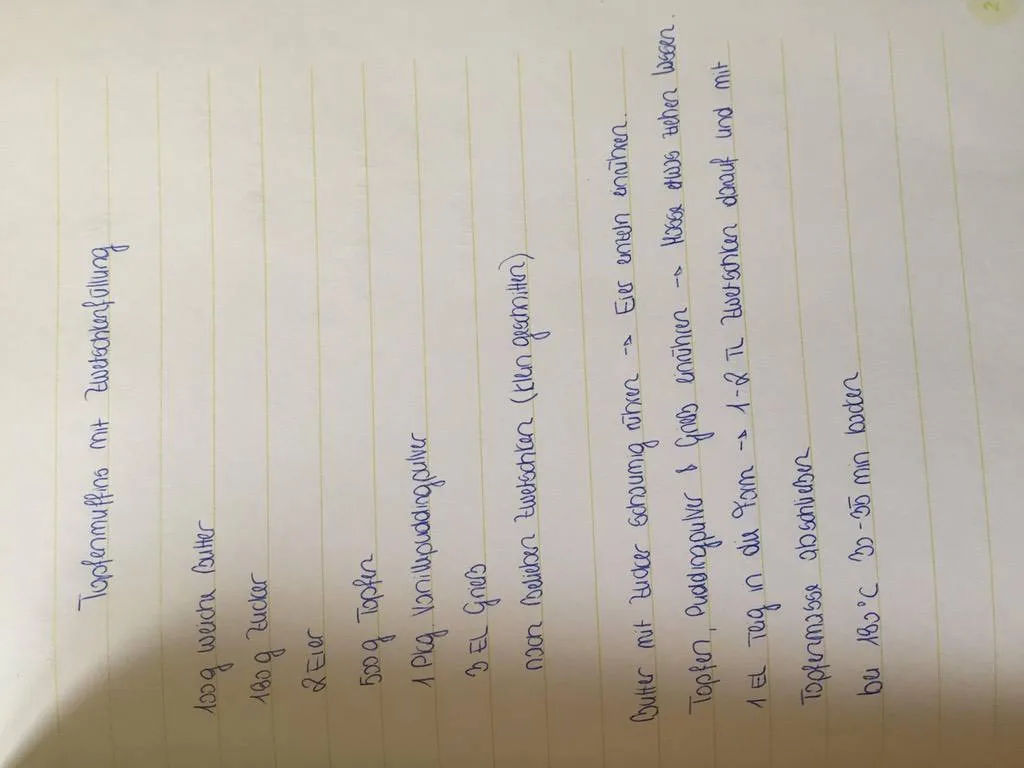 Topfenmuffins mit Zwetschkenfüllung
100g weiche Butter
180g Zucker
2 Eier
500g Topfen
1 Pkg Vanillepuddingpulver
3 EL Grieß
nach Belieben Zwetschken (klein geschnitten)
Butter mit Zucker schaumig rühren → Eier einzeln einrühren.
Topfen, Puddingpulver & Grieß einrühren → Masse etwas ziehen lassen.
1 EL Taig in die Form → 1-2 TL Zwetschken darauf und mit
Topfenmasse abschließen
bei 180°C 30-35 min backen
2